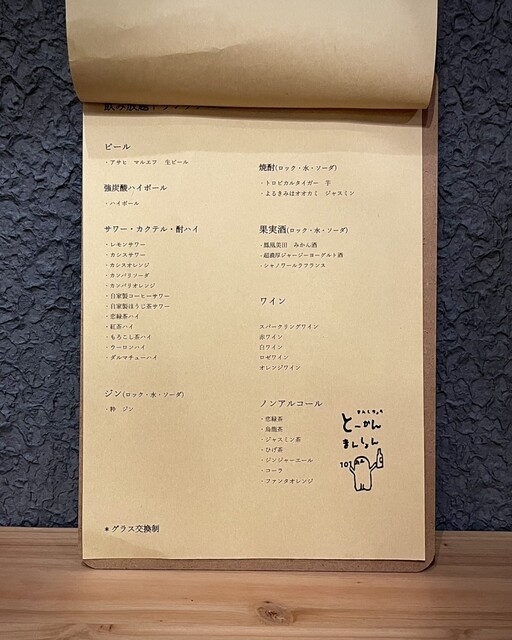 飲み放題ドリンク
ビール
・アサヒ マルエフ 生ビール
強炭酸ハイボール
・ハイボール
サワー・カクテル・酎ハイ
・レモンサワー
・カシスサワー
・カシスオレンジ
・カンパリソーダ
・カンパリオレンジ
・自家製コーヒーサワー
・自家製ほうじ茶サワー
・恋緑茶ハイ
・紅茶ハイ
・もろこし茶ハイ
・ウーロンハイ
・ダルマチューハイ
ジン(ロック・水・ソーダ)
・粋 ジン
＊グラス交換制
焼酎(ロック・水・ソーダ)
・トロピカルタイガー 芋
・よるきみはオオカミ ジャスミン
果実酒(ロック・水・ソーダ)
・鳳凰美田 みかん酒
・超濃厚ジャージーヨーグルト酒
・シャノワールラフランス
ワイン
スパークリングワイン
赤ワイン
白ワイン
ロゼワイン
オレンジワイン
ノンアルコール
・恋緑茶
・烏龍茶
・ジャスミン茶
・ひげ茶
・ジンジャーエール
・コーラ
・ファンタオレンジ
とーかん
まんしょん
101